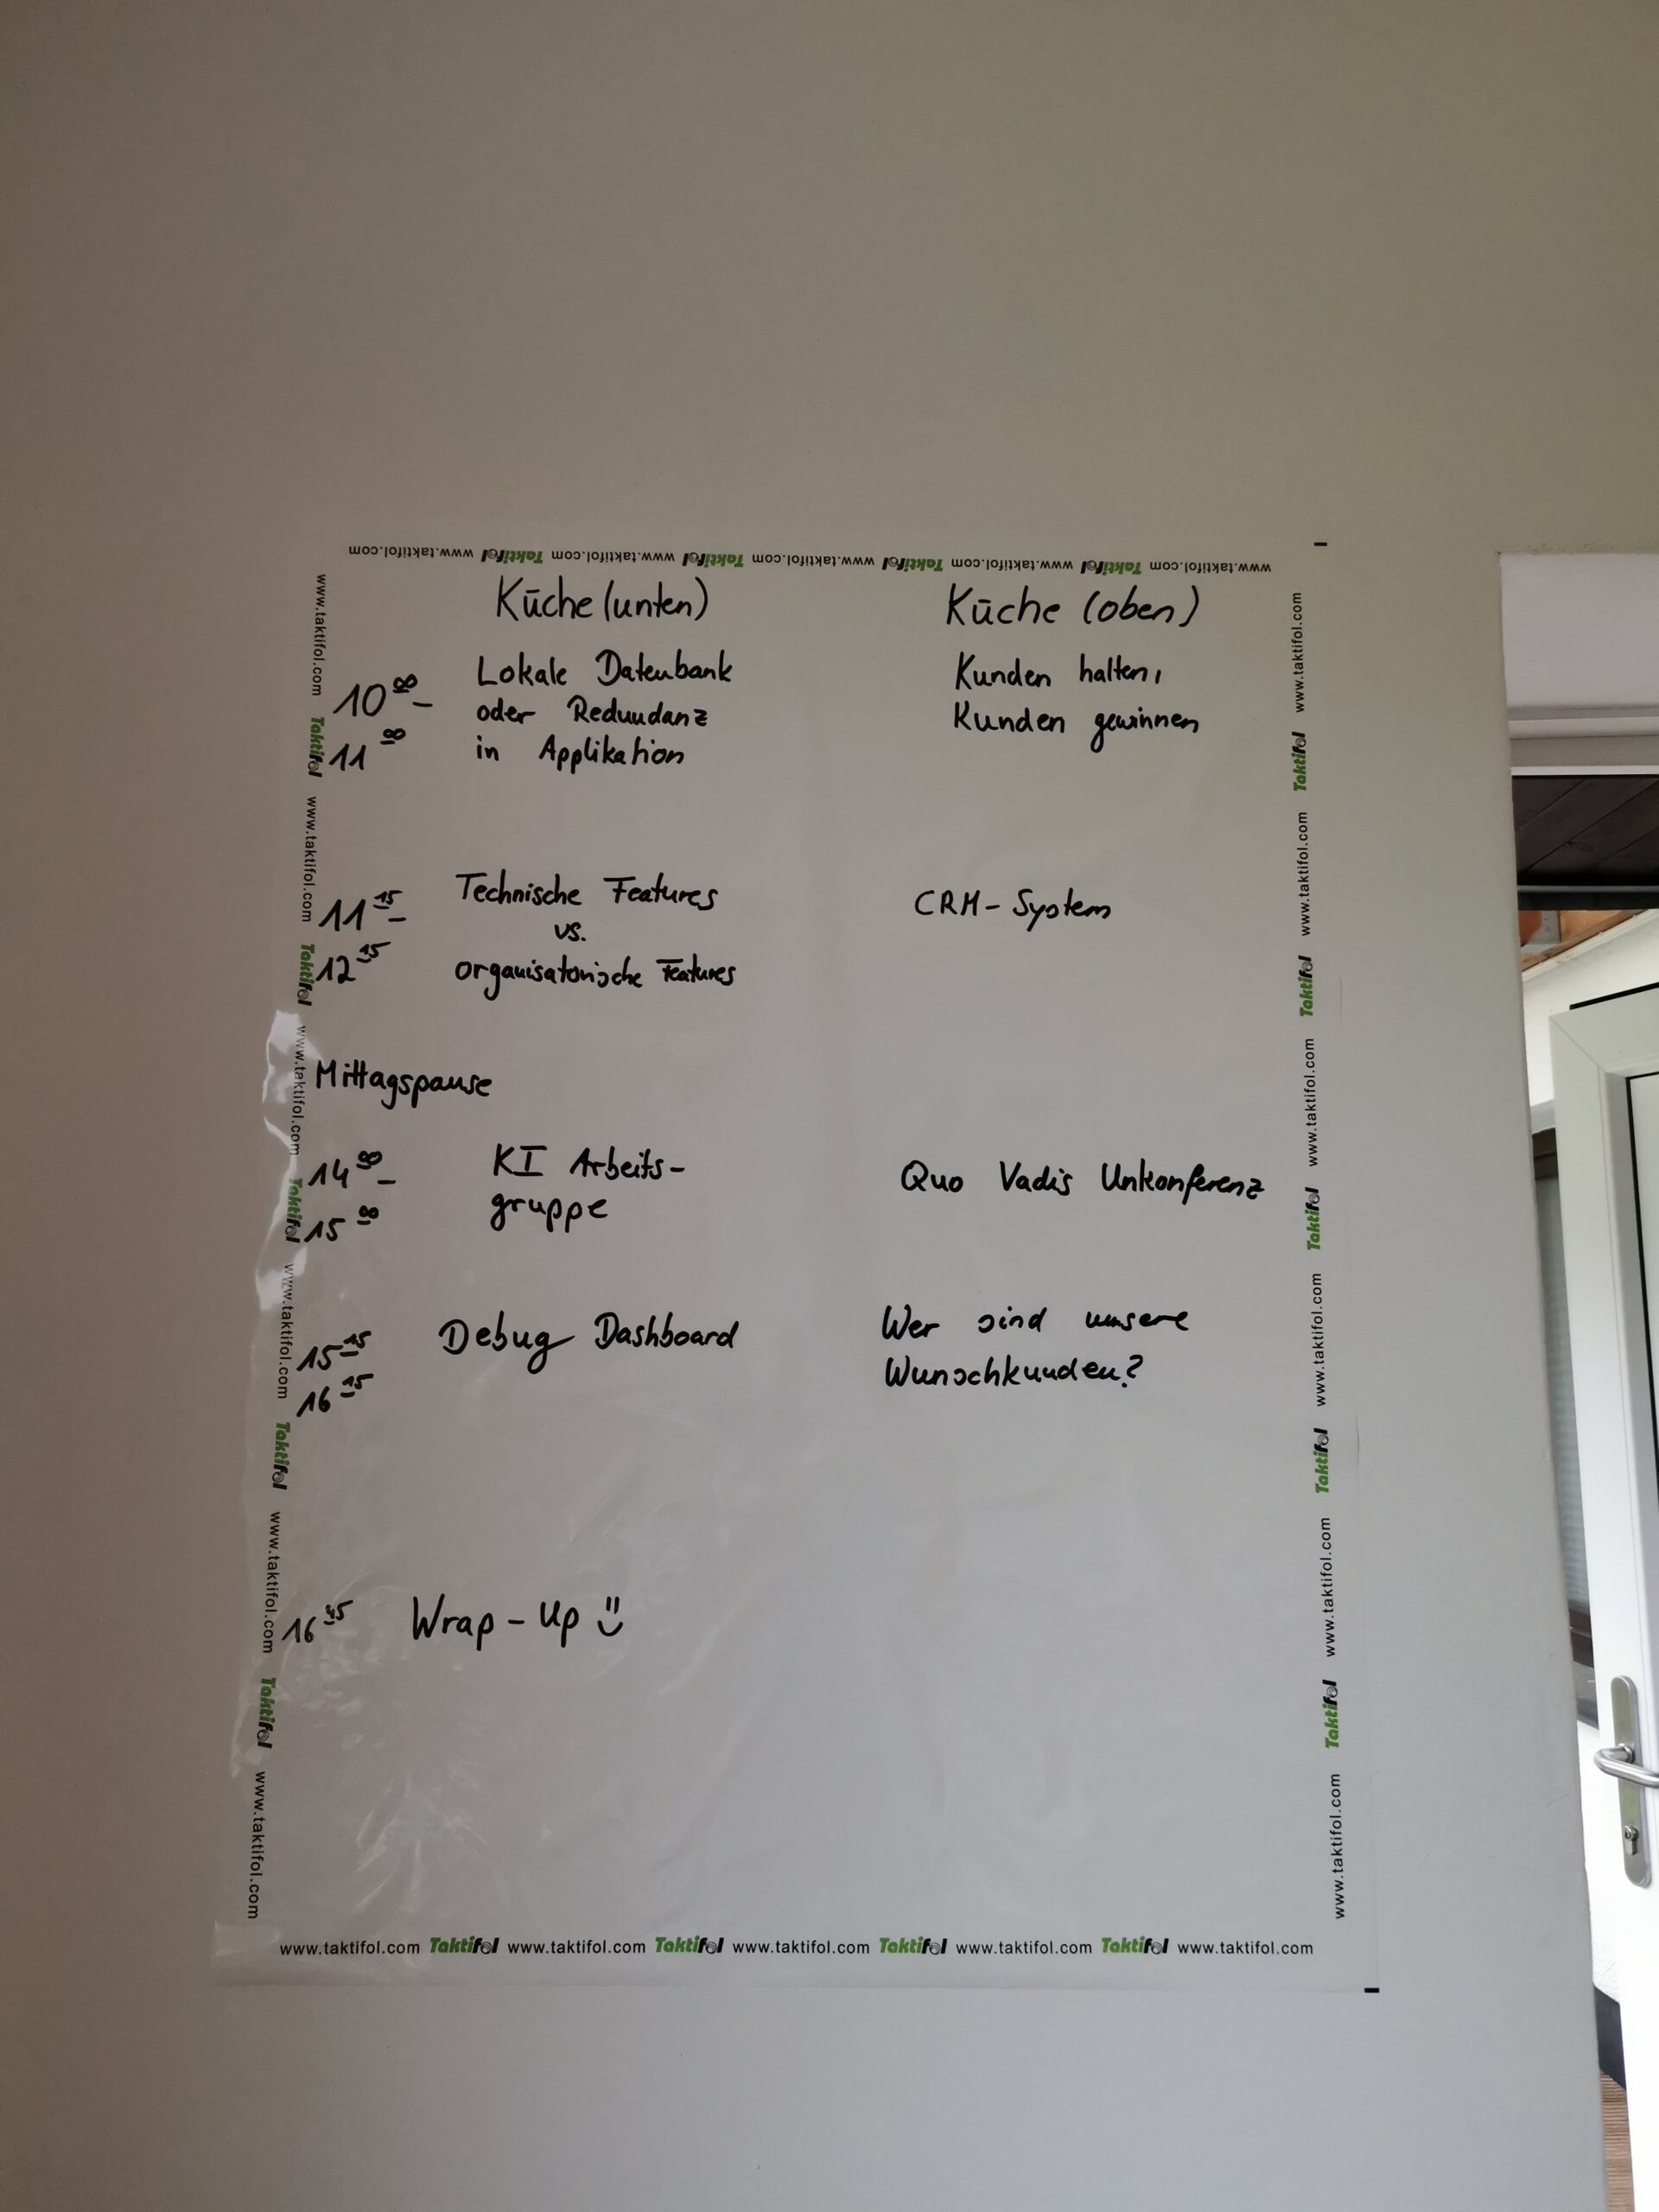 www.taktifol.com Taktifol www.taktifol.com Taktifol www.taktifol.com Taktifol www.taktifol.com Taktifol www.taktifol.com
Küche (unten) Küche (oben)
10 00 -
11 00
Lokale Datenbank
oder Redundanz
in Applikation
Kunden halten,
Kunden gewinnen
11 15 -
12 15
Technische Features
vs.
organisatorische Features
CRM-System
Mittagspause
14 00 -
15 00
KI Arbeits-
gruppe
Quo Vadis Unkonferenz
15 15 -
16 15
Debug Dashboard
Wer sind unsere
Wunschkunden?
16 45 Wrap-Up
www.taktifol.com Taktifol www.taktifol.com Taktifol www.taktifol.com Taktifol www.taktifol.com Taktifol www.taktifol.com Taktifol www.taktifol.com
www.taktifol.com Taktifol www.taktifol.com Taktifol www.taktifol.com Taktifol www.taktifol.com Taktifol www.taktifol.com Taktifol www.taktifol.com
www.taktifol.com Taktifol www.taktifol.com Taktifol www.taktifol.com Taktifol www.taktifol.com Taktifol www.taktifol.com